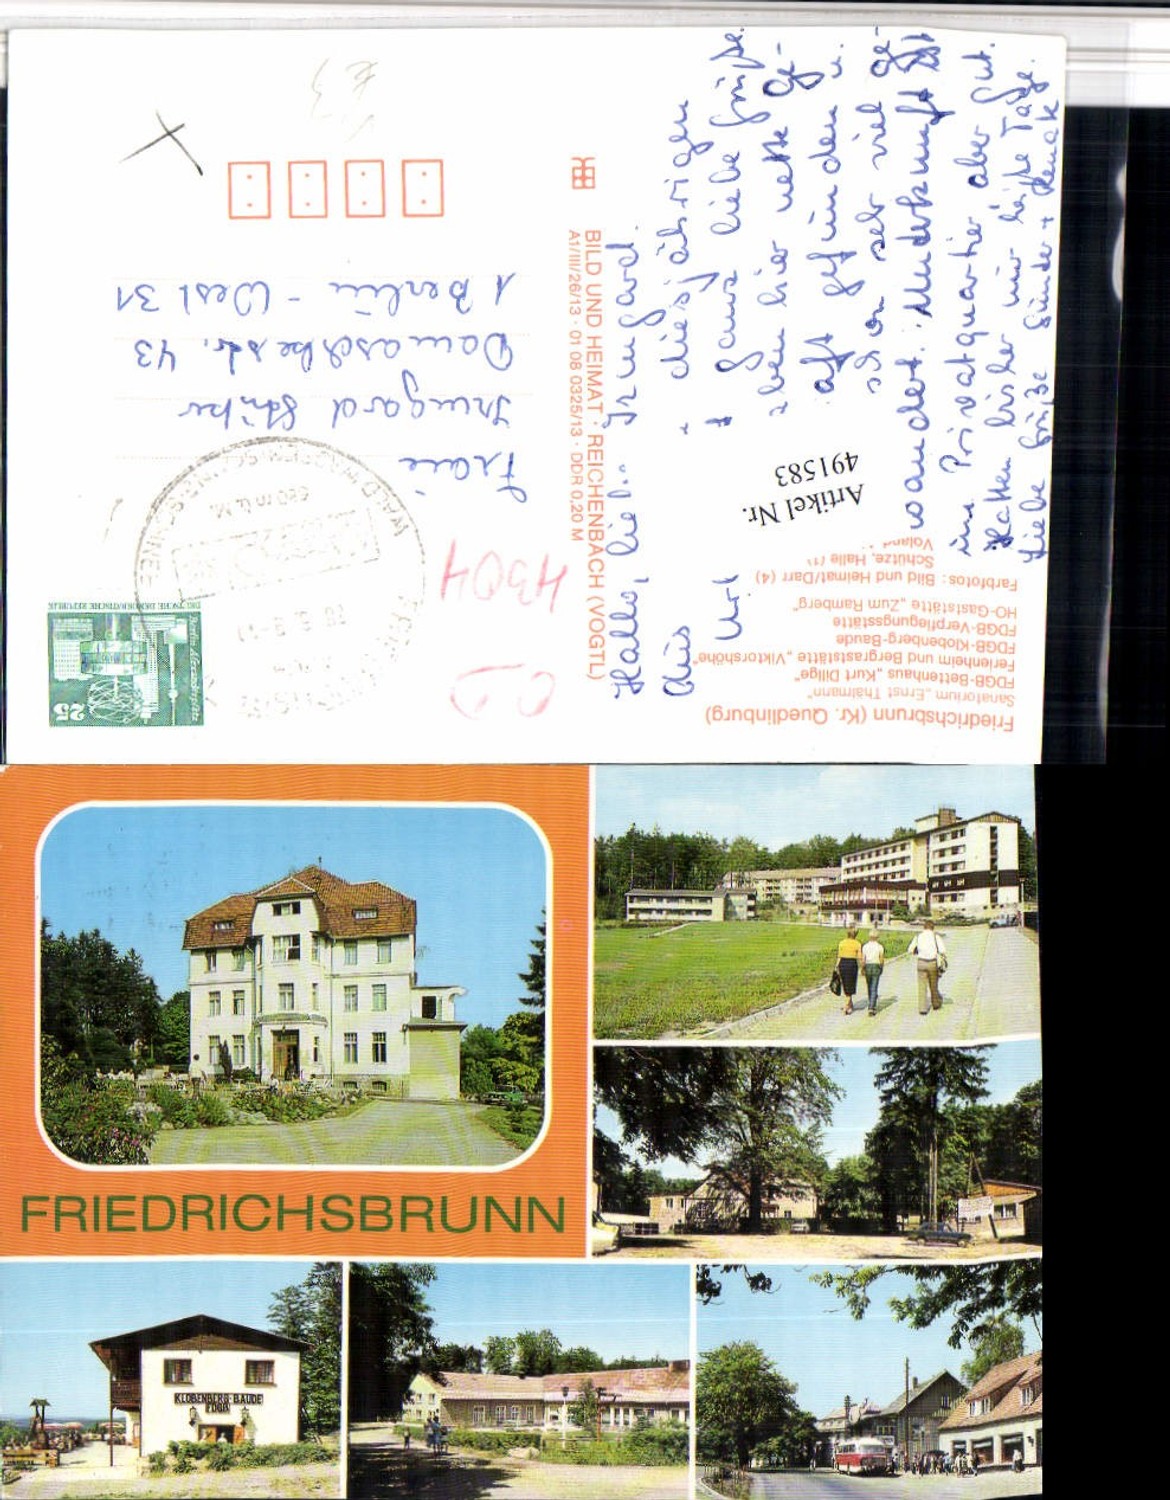 Friedrichsbrunn (Kr. Quedlinburg)
Sanatorium „Ernst Thälmann"
FDGB-Bettenhaus „Kurt Dillge"
Ferienheim und Bergraststätte „Viktorshöhe"
FDGB-Klobenberg-Baude
FDGB-Verpflegungsstätte
HO-Gaststätte „Zum Ramberg"
Farbfotos: Bild und Heimat/Darr (4)
Schütze, Halle (1)
Voland
Artikel Nr.
491583
Hallo, liebe Irmgard.
Aus diesjährigen
Url ganz liebe Grüße.
aben hier nette Ge-
aft gefunden u.
schon sehr viel ge-
wandert. Unterkunft ist
im Privatquartier aber gut.
Hatten bisher nur heiße Tage.
Liebe Grüße Günter +
BILD UND HEIMAT · REICHENBACH (VOGTL)
A1/III/26/13 · 01 08 0325/13 · DDR 0,20 M
25
Berlin · Alexanderplatz
DEUTSCHE DEMOKRATISCHE REPUBLIK
4304
Frau
Irmgard
Damaschkestr. 43
1 Berlin - West 31
€3
FRIEDRICHSBRUNN
KLOBENBERG-BAUDE
FDGB